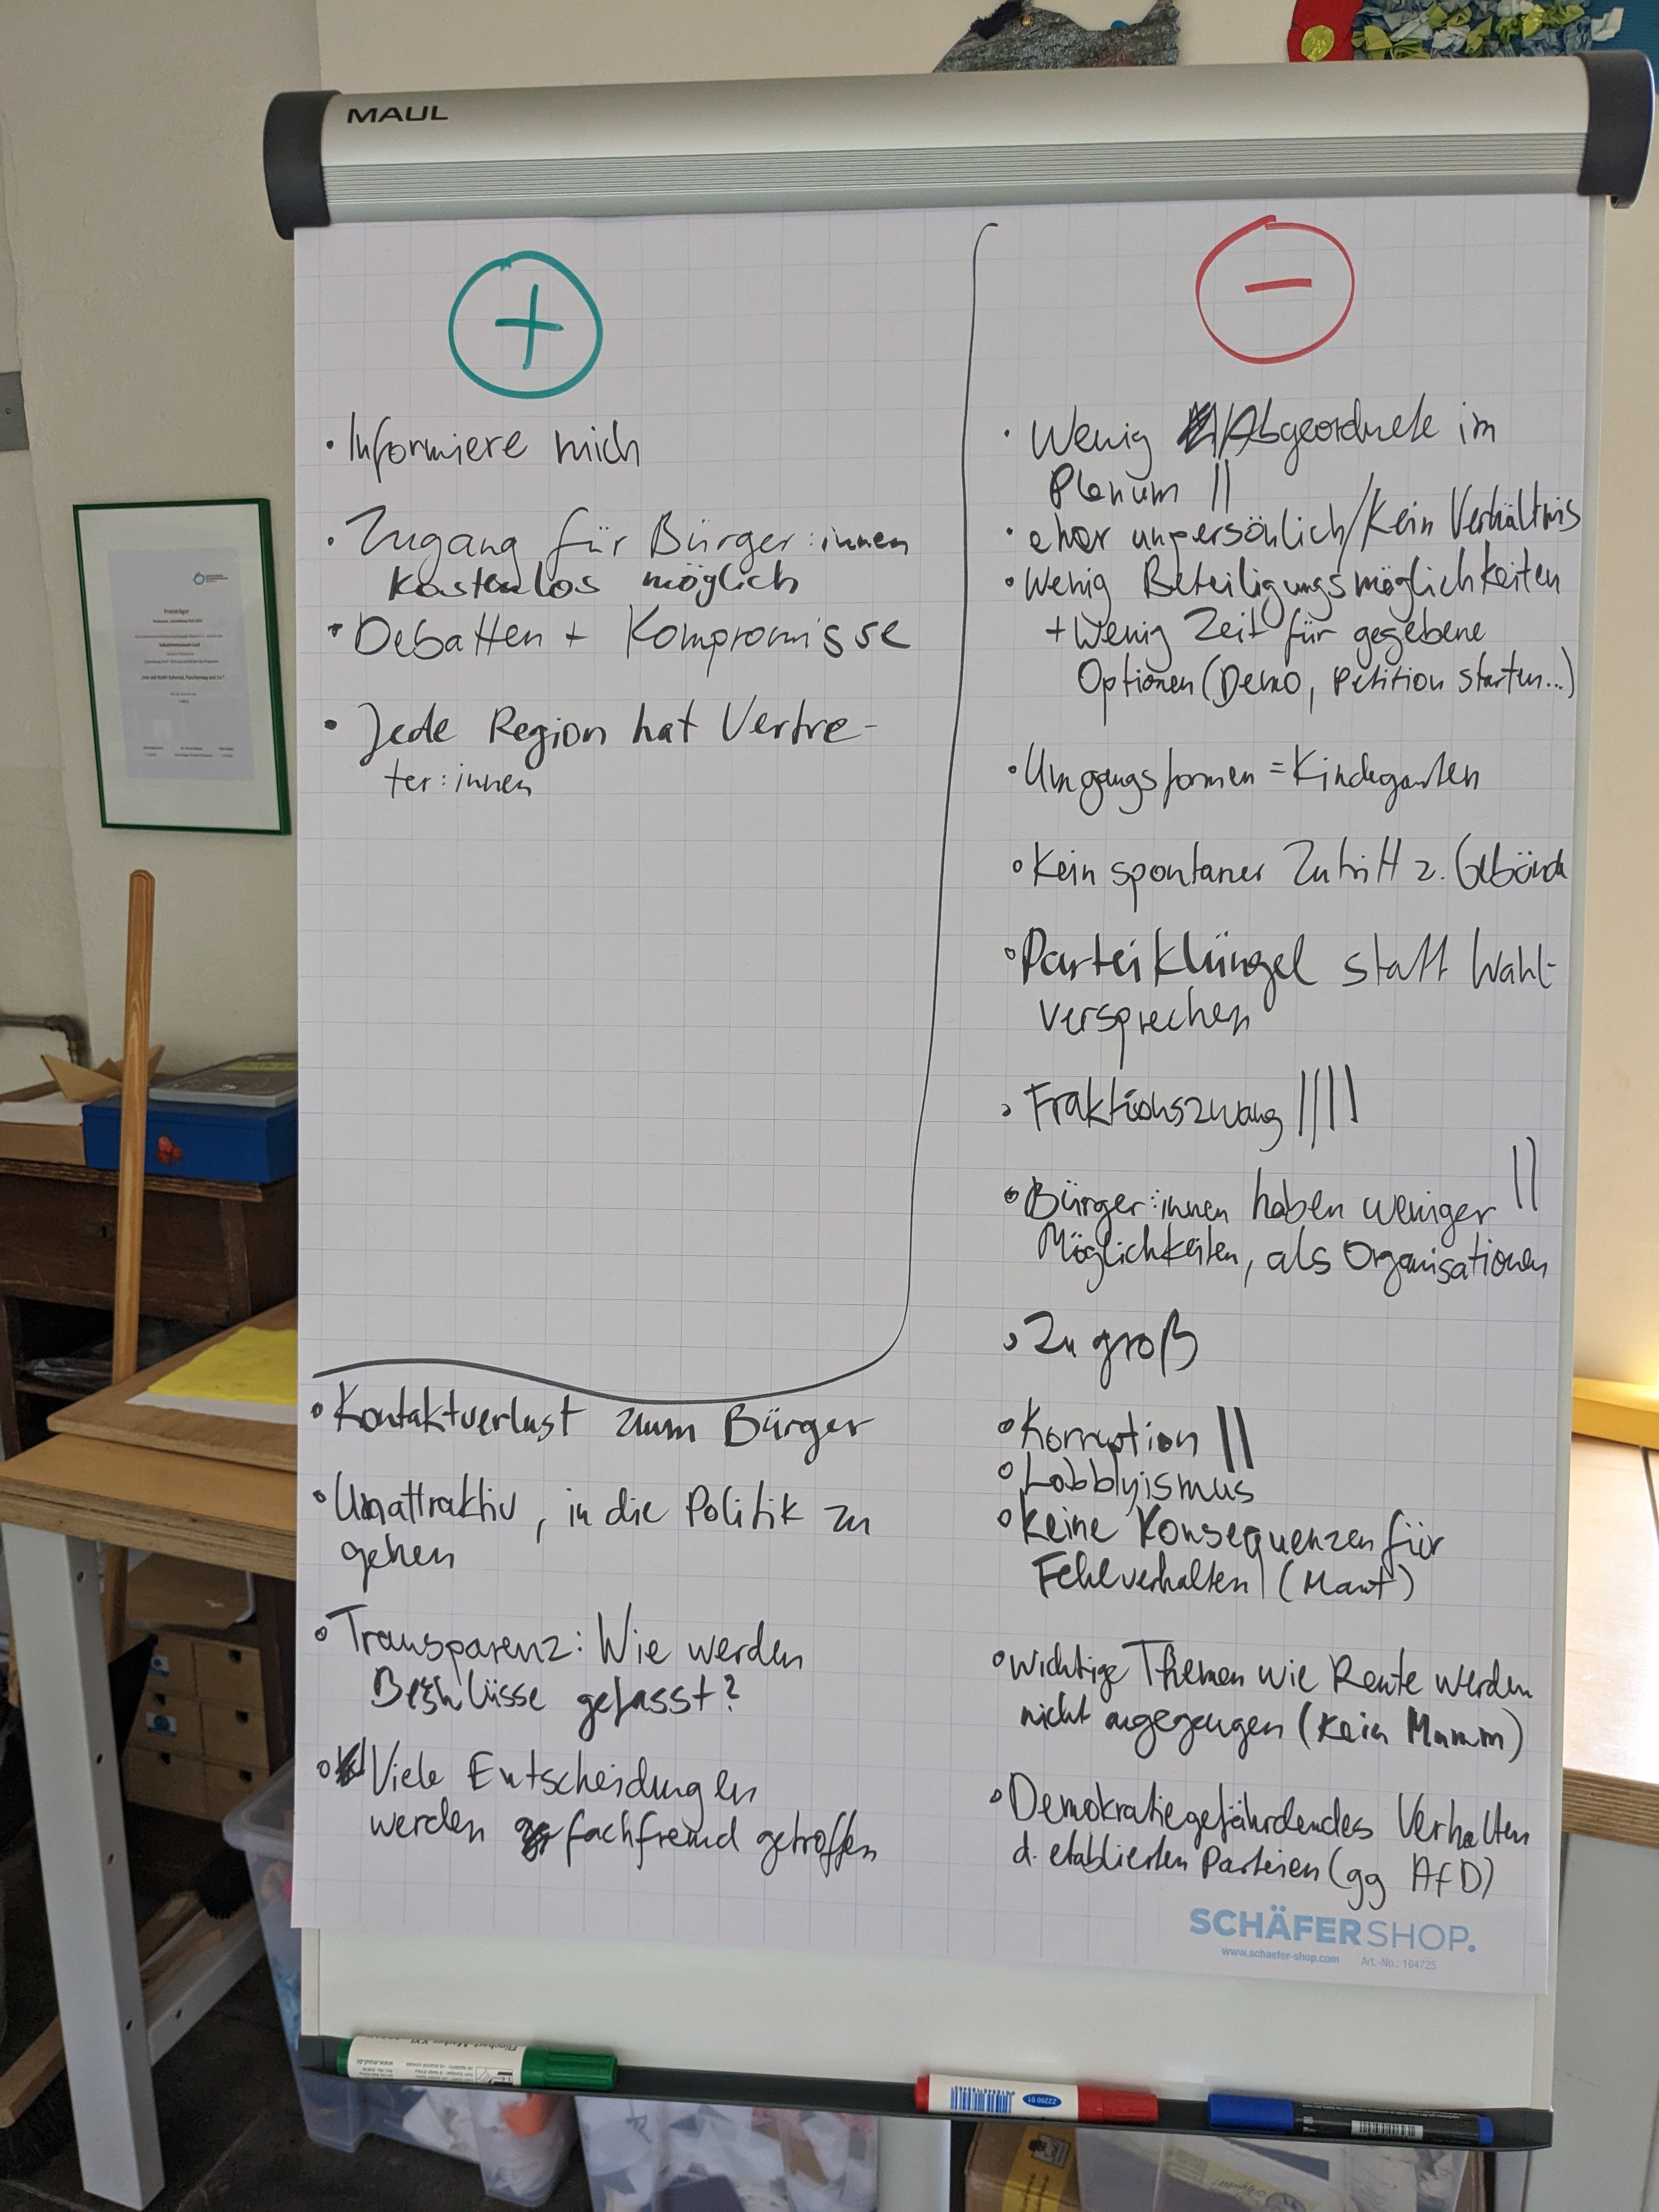 MAUL
+
• Informiere mich
• Zugang für Bürger:innen
kostenlos möglich
• Debatten + Kompromisse
• Jede Region hat Vertre-
ter:innen
−
• Wenig Abgeordnete im
Plenum ||
• eher unpersönlich/Kein Verhältnis
• Wenig Beteiligungsmöglichkeiten
+ Wenig Zeit für gegebene
Optionen (Demo, Petition starten...)
• Umgangsformen = Kindegarten
• Kein spontaner Zutritt z. Gebäude
• Parteiklüngel statt Wahl-
versprechen
• Fraktionszwang ||||
• Bürger:innen haben weniger ||
Möglichkeiten, als Organisationen
• Zu groß
• Korruption ||
• Lobblyismus
• Keine Konsequenzen für
Fehlverhalten (Maut)
• Wichtige Themen wie Rente werden
nicht angegangen (Kein Mumm)
• Demokratiegefährdendes Verhalten
d. etablierten Parteien (gg AfD)
• Kontaktverlust zum Bürger
• Unattraktiv, in die Politik zu
gehen
• Transparenz: Wie werden
Beschlüsse gefasst?
• Viele Entscheidungen
werden fachfremd getroffen
SCHÄFER SHOP.
www.schaefer-shop.com Art.-No.: 164725